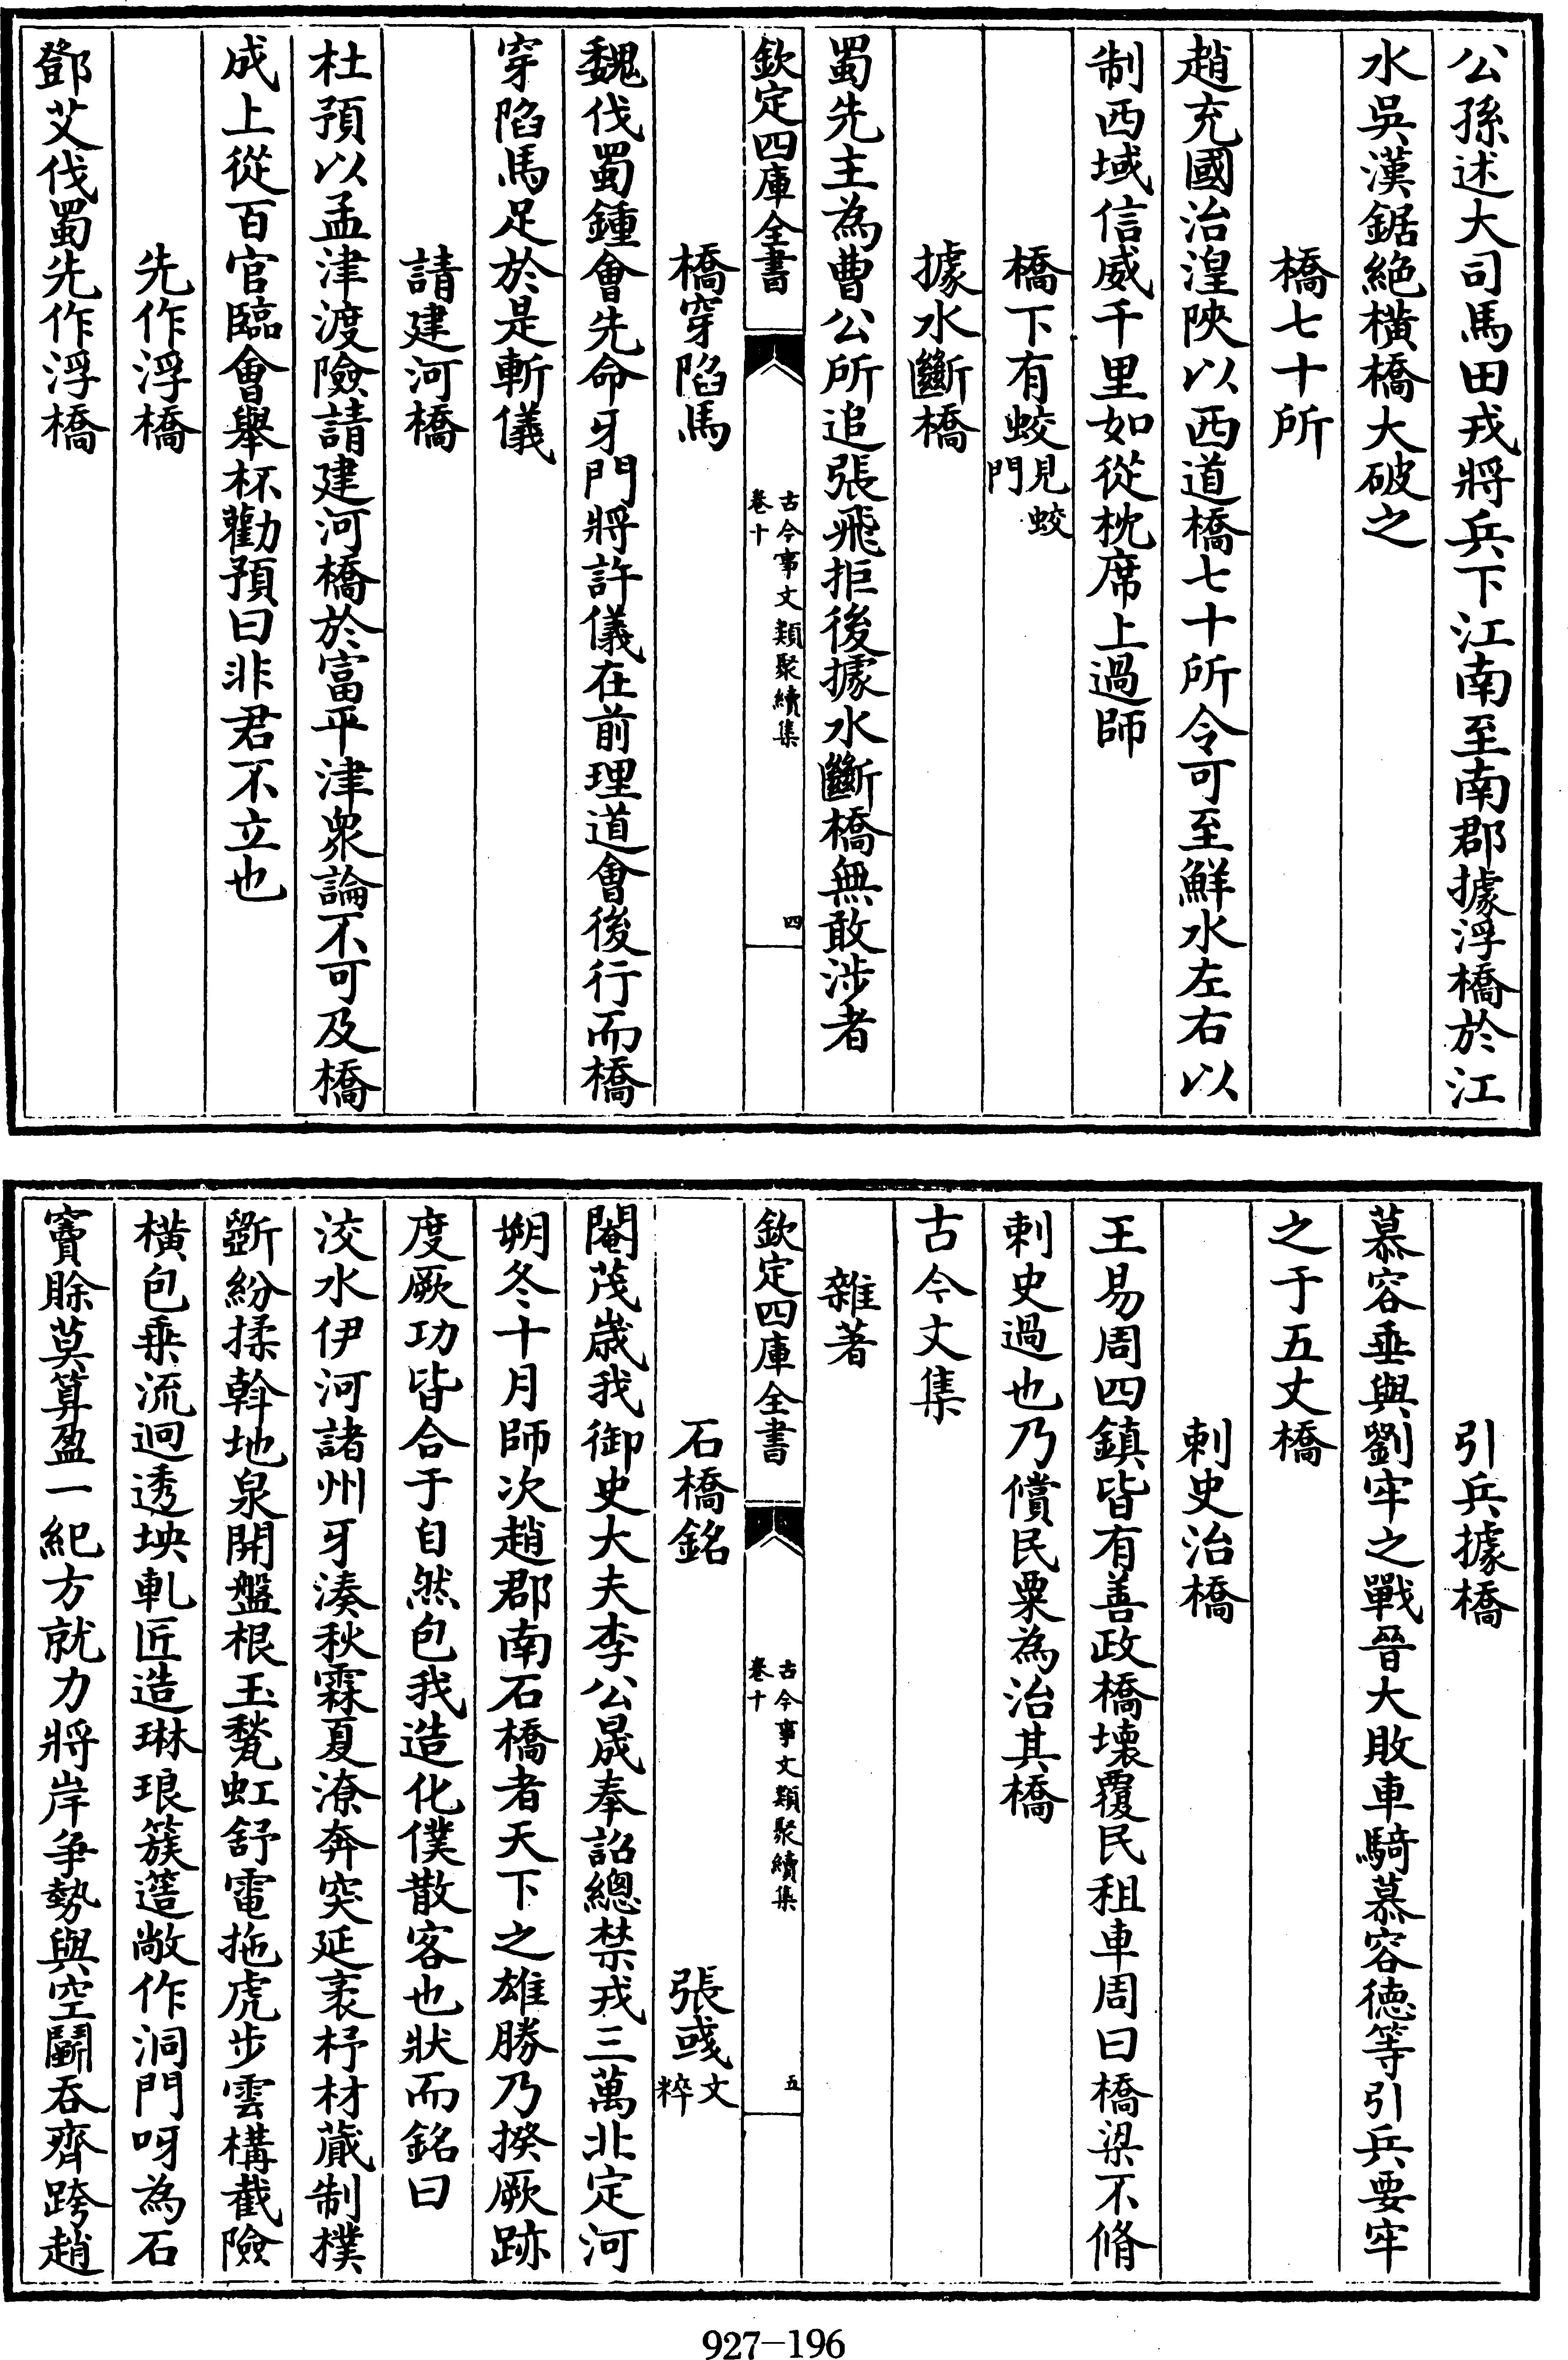 公孫述大司馬田戎將兵下江南至南郡據浮橋於江
水吳漢鋸絶橫橋大破之
橋七十所
趙充國治湟陿以西道橋七十所令可至鮮水左右以
制西域信威千里如從枕席上過師
橋下有蛟見蛟門
據水斷橋
蜀先主為曹公所追張飛拒後據水斷橋無敢涉者
欽定四庫全書
古今事文類聚續集
卷十
四
橋穿陷馬
魏伐蜀鍾會先命牙門將許儀在前理道會後行而橋
穿陷馬足於是斬儀
請建河橋
杜預以孟津渡險請建河橋於富平津衆論不可及橋
成上從百官臨會舉杯勸預曰非君不立也
先作浮橋
鄧艾伐蜀先作浮橋
引兵據橋
慕容垂與劉牢之戰晉大敗車騎慕容徳等引兵要牢
之于五丈橋
刺史治橋
王易周四鎮皆有善政橋壊覆民租車周曰橋梁不脩
刺史過也乃償民粟為治其橋
古今文集
雜著
欽定四庫全書
古今事文類聚續集
卷十
五
石橋銘
張彧文粹
閹茂嵗我御史大夫李公晟奉詔總禁戎三萬北定河
朔冬十月師次趙郡南石橋者天下之雄勝乃揆厥跡
度厥功皆合于自然包我造化僕散客也狀而銘曰
洨水伊河諸州牙湊秋霖夏潦奔突延袤杼材蕆制樸
斲紛揉斡地泉開盤根玉甃虹舒電拖虎步雲構截險
橫包乗流迥透坱軋匠造琳琅簇簉敞作洞門呀為石
竇賒莫算盈一紀方就力將岸爭勢與空鬭吞齊跨趙
927-196